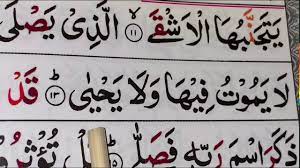 يَتَجَنَّبُهَا الْاَشْقَى ۙ﴿۱۱﴾ الَّذِىْ يَصْلَى
لَا يَمُوْتُ فِيْهَا وَلَا يَحْيٰىؕ ﴿۱۳﴾ قَدْ
ذَكَرَ اسْمَ رَبِّهٖ فَصَلّٰىؕ